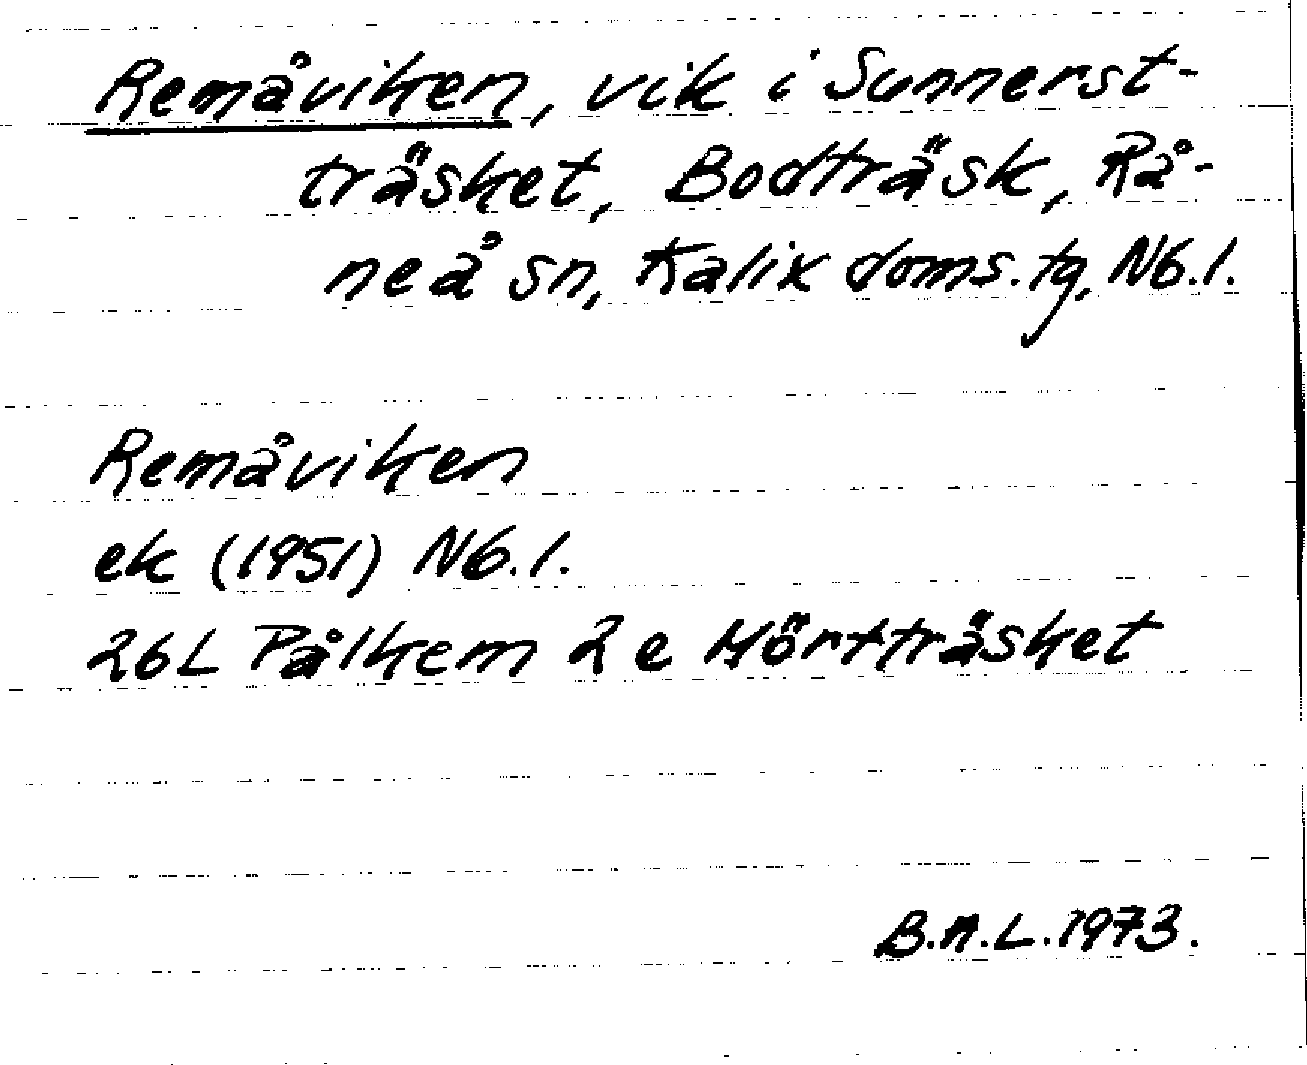 Remåviken, vik i Sunnerst-
träsket, Bodträsk, Rå-
neå sn, Kalix doms. tg, Nb. l.
Remåviken
ek (1951) Nb. l.
26L Pålkem 2 e Hörrträsket
B.N.L. 1973.